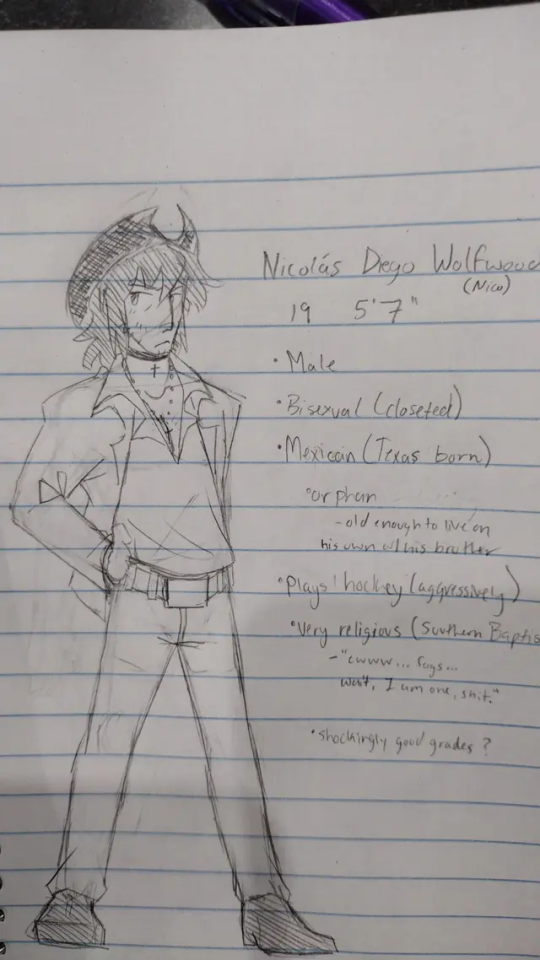 Nicolás Diego Wolfwood
(Nico)
19 5'7"
• Male
• Bisexual (closeted)
• Mexican (Texas born)
° orphan
- old enough to live on
his own w/ his brother
• Plays hockey (aggressively)
• Very religious (Southern Baptis
- "ewww... fags...
wait, I am one, shit."
• shockingly good grades?